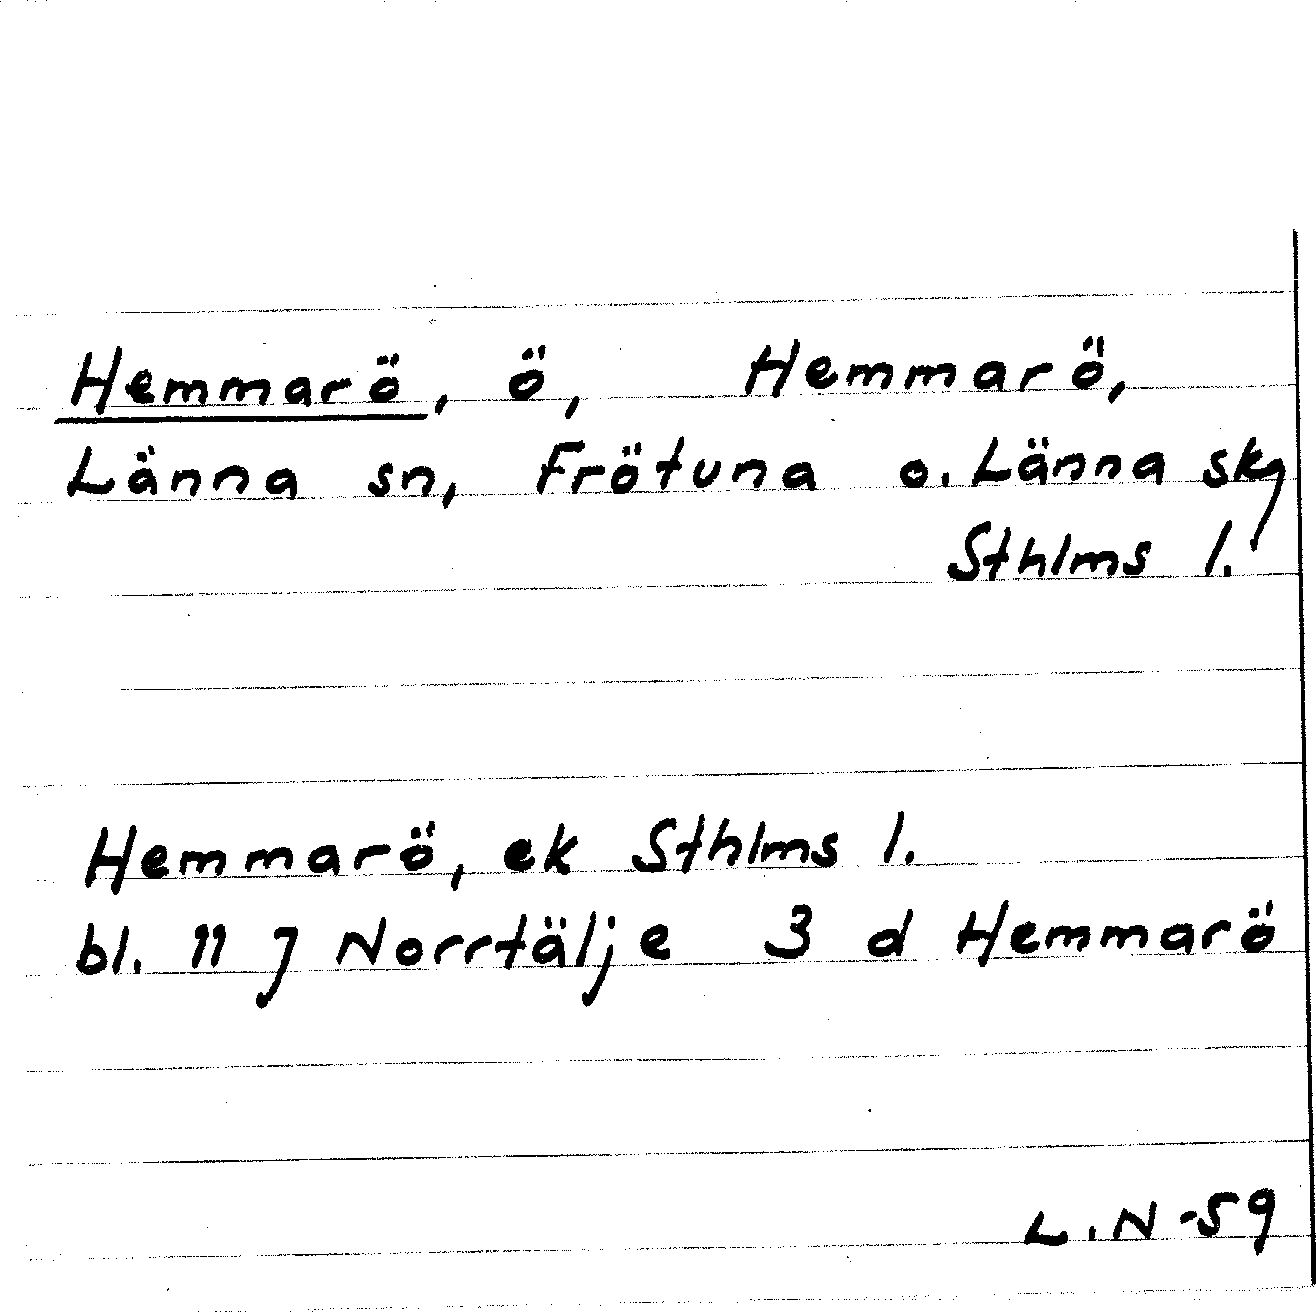 Hemmarö, ö, Hemmarö,
Länna sn, Frötuna o. Länna skg
Sthlms l.
Hemmarö, ek Sthlms l.
bl. 11 J Norrtälje 3 d Hemmarö
L.N -59